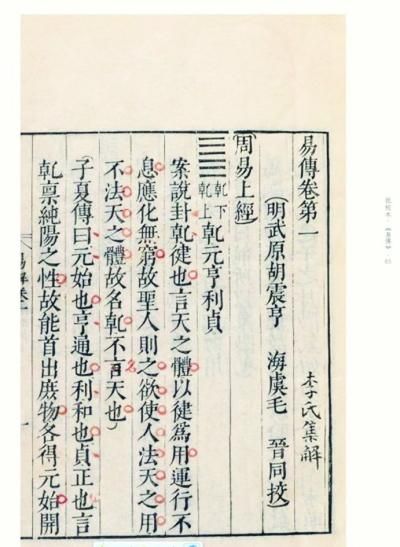 批校本·《易傳》·65
易傳卷第一
李氏集解
(明武原胡震亨 海虞毛 晉同挍)
(周易上經)
乾下
乾上
乾元亨利貞
案說卦乾健也言天之體以健爲用運行不
息應化無窮故聖人則之欲使人法天之用
不法天之體故名乾不言天也)
名
(子夏傳曰元始也亨通也利和也貞正也言
乾禀純陽之性故能首出庶物各得元始開
易解卷一
一